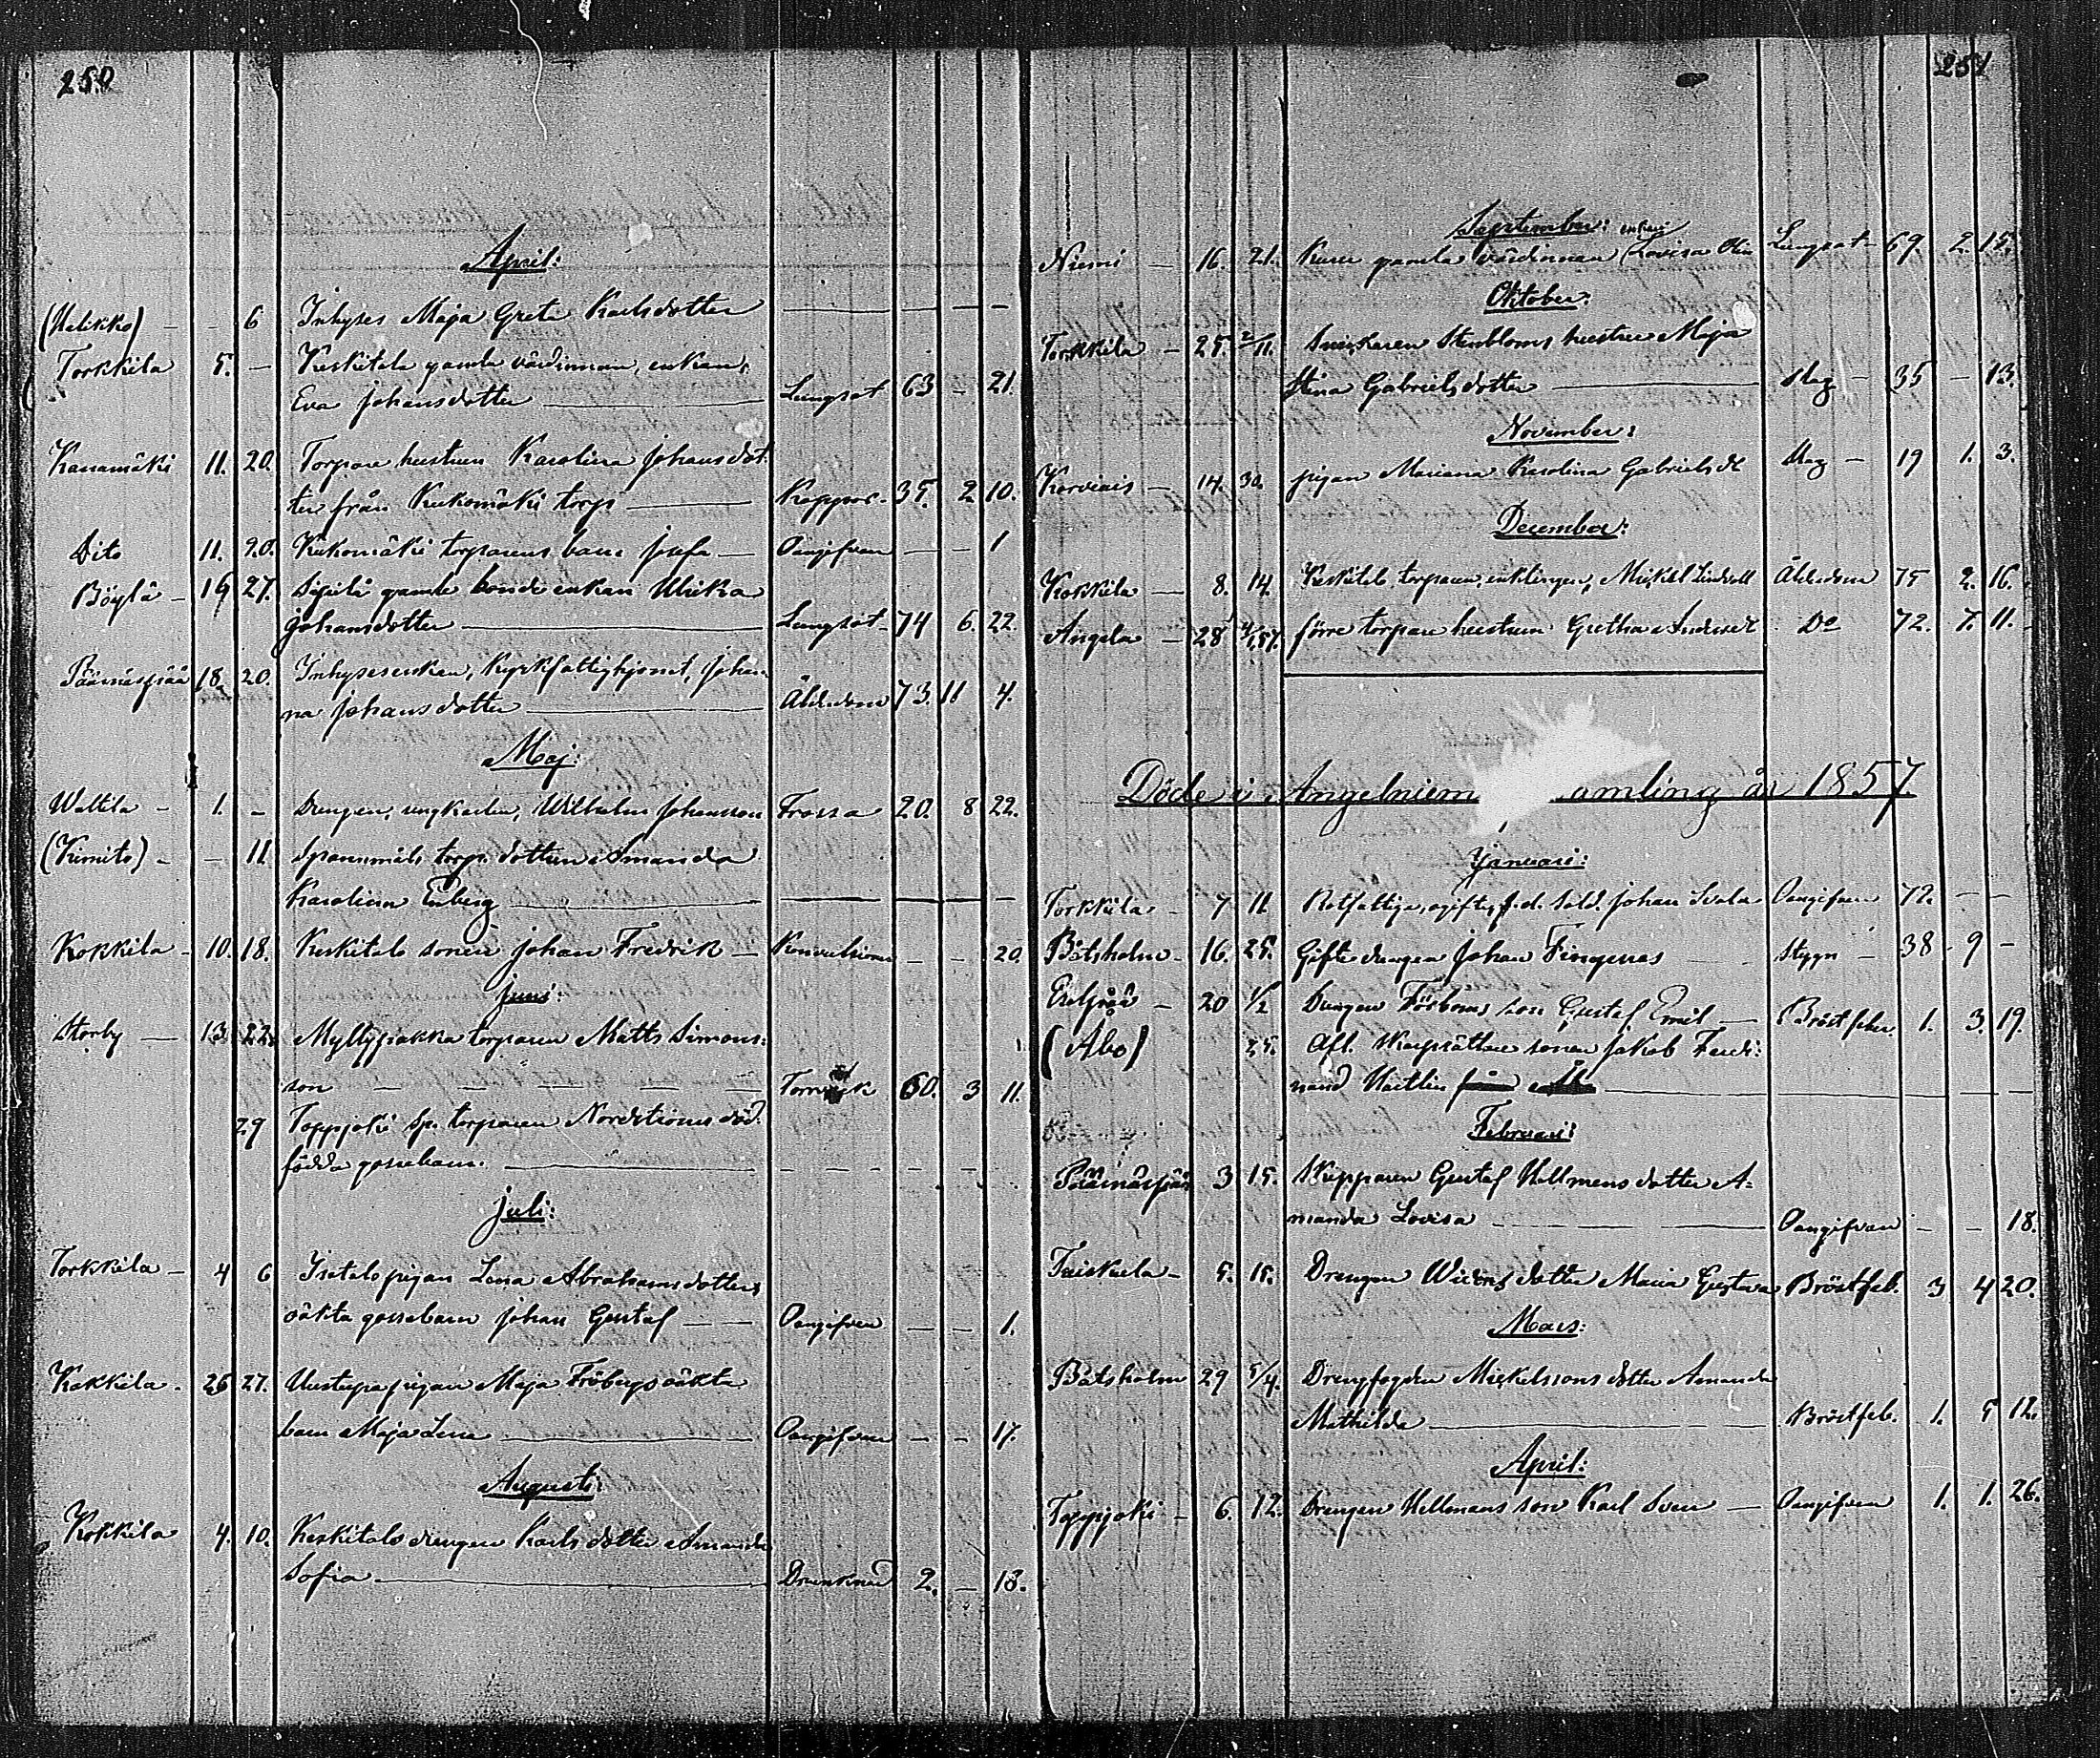 250
April:
(Halikko) — — 6 Inhyses Maja Greta Karlsdotter — — — —
Torkkila 5. — Keskitalo gamla värdinnan, enkan,
Eva Johansdotter — Lungsot 63 — 21.
Kanamäki 11. 20. Torpare hustrun Karolina Johansdot:
ter från Kukomäki torp — Koppor. 35. 2 10.
Dito 11. 20. Kukomäki torparens barn Josefa — Oangifven — — 1
Böylä — 19 27. Sipilä gamla bonde enkan Ulrika
Johansdotter — Lungsot 74 6. 22.
Päärnäspää 18. 20. Inhysesenkan, kyrkfattighjonet, Johan-
na Johansdotter — Ålderdom 73. 11 4.
Maj:
Waltila — 1. — Drengen, ungkarlen, Wilhelm Johansson Frossa 20. 8 22.
(Kimito) — — 11 torp. dottren Amanda
Karolina Enberg — — — —
Kokkila — 10. 18. Keskitalo sonen Johan Fredrik — Konvulsioner — — 20.
Juni:
Storby — 13. 22. Myllyjiakka torparen Matts Simons:
son — — — — 60. 3 11.
29 Toppjoki sp. torparen Nordströms död-
födda gossebarn. — — — —
Juli:
Torkkila — 4 6 Isotalo pigan Lena Abrahamsdotters
oäkta gossebarn Johan Gustaf — — Oangifven — — 1.
Kokkila. 26 27. Uustupa pigan Maja Fröbergs oäkta
barn Maja Lena — Oangifven — — 17.
Augusti:
Kokkila 4. 10. Keskitalo drengen Karls dotter Amanda
Sofia — Drunknad 2. — 18.
251
September:
Niemi — 16. 21. gamla värdinnan enkan Lovisa Lungsot 69 2. 15.
Oktober:
Torkkila — 25. 2/11. Snickaren Stenbloms hustru Maja
Stina Gabrielsdotter — Slag — 35 — 13.
November:
Korvenis — 14. 30. pigan Mariana Karolina Gabrielsdr Slag — 19 1. 3.
December:
Kokkila — 8. 14. Keskitalo torparen, enklingen, Mickel Lindvall Ålderdom 75 2. 16.
Angela — 28 4/1.57. förre torpare hustrun Gretha Andersdr Do 72. 7. 11.
Döde i Angelniemi amling år 1857.
Januari:
Torkkila — 7 11 Rotfattige, ogifte, f.d. Sold. Johan Svala Oangifven 72. — —
Båtsholm — 16. 25. Gifte drengen Johan Fingerroos — Stygn — 38 9 —
— 20 1/2 Drengen Förboms son Gustaf Emil — Bröstfeber 1. 3. 19.
(Åbo) 25. Afl. sonen Jakob Ferdi:
nand — — — —
Februari:
Päärnäspää 3 15. Skepparen Gustaf Hellmens dotter A-
manda Lovisa — Oangifven — — 18.
Tuiskula — 5. 15. Drengen dotter Maria Gustava Bröstfeb. 3 4 20.
Mars:
Båtsholm 29 5/4. Drengfogden Mickelssons dotter Amanda
Mathilda — Bröstfeb. 1. 5 12.
April:
Toppjoki — 6. 12. Drengen Hellmans son Karl Sven — Oangifven 1. 1. 26.